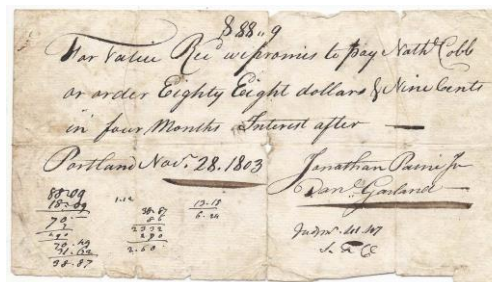 $88..9
For Value Rec.d we promis to pay Nath.l Cobb
or order Eighty Eight dollars & Nine Cents
in four Months Interest after
Portland Nov.r 28. 1803
Jonathan Paine Jr
Dan.l Garland
88-09
18-09
70.-
1.12
38-87
86
2332
2.60
13-18
6-24
38.87